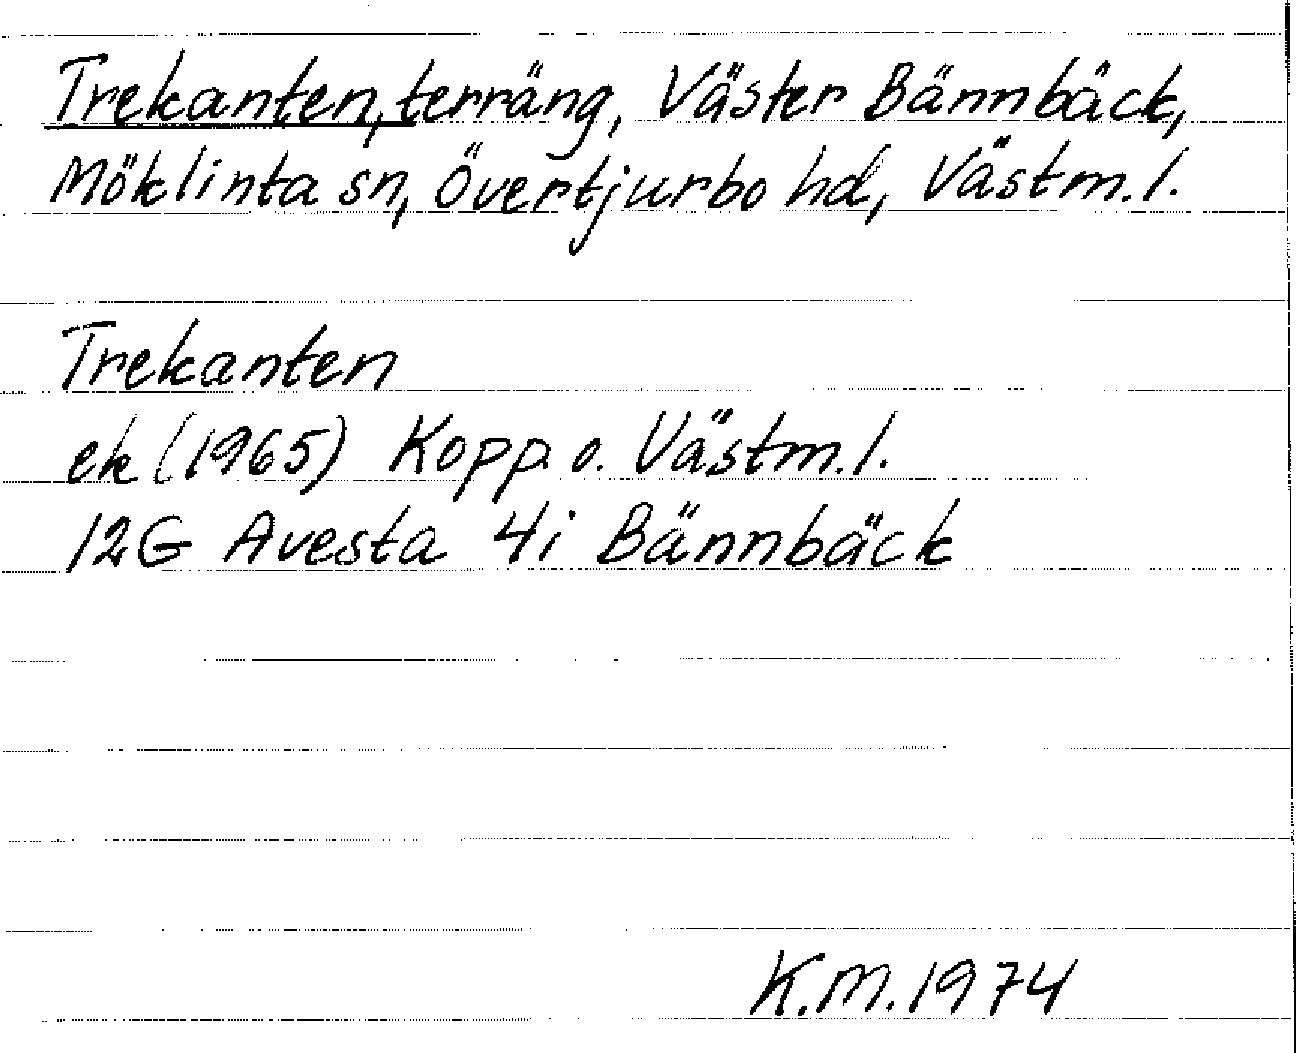 Trekanten, terräng, Väster Bännbäck,
Möklinta sn, Övertjurbo hd, Västm.l.
Trekanten
ek (1965) Kopp. o. Västm.l.
12G Avesta 4i Bännbäck
K.M. 1974